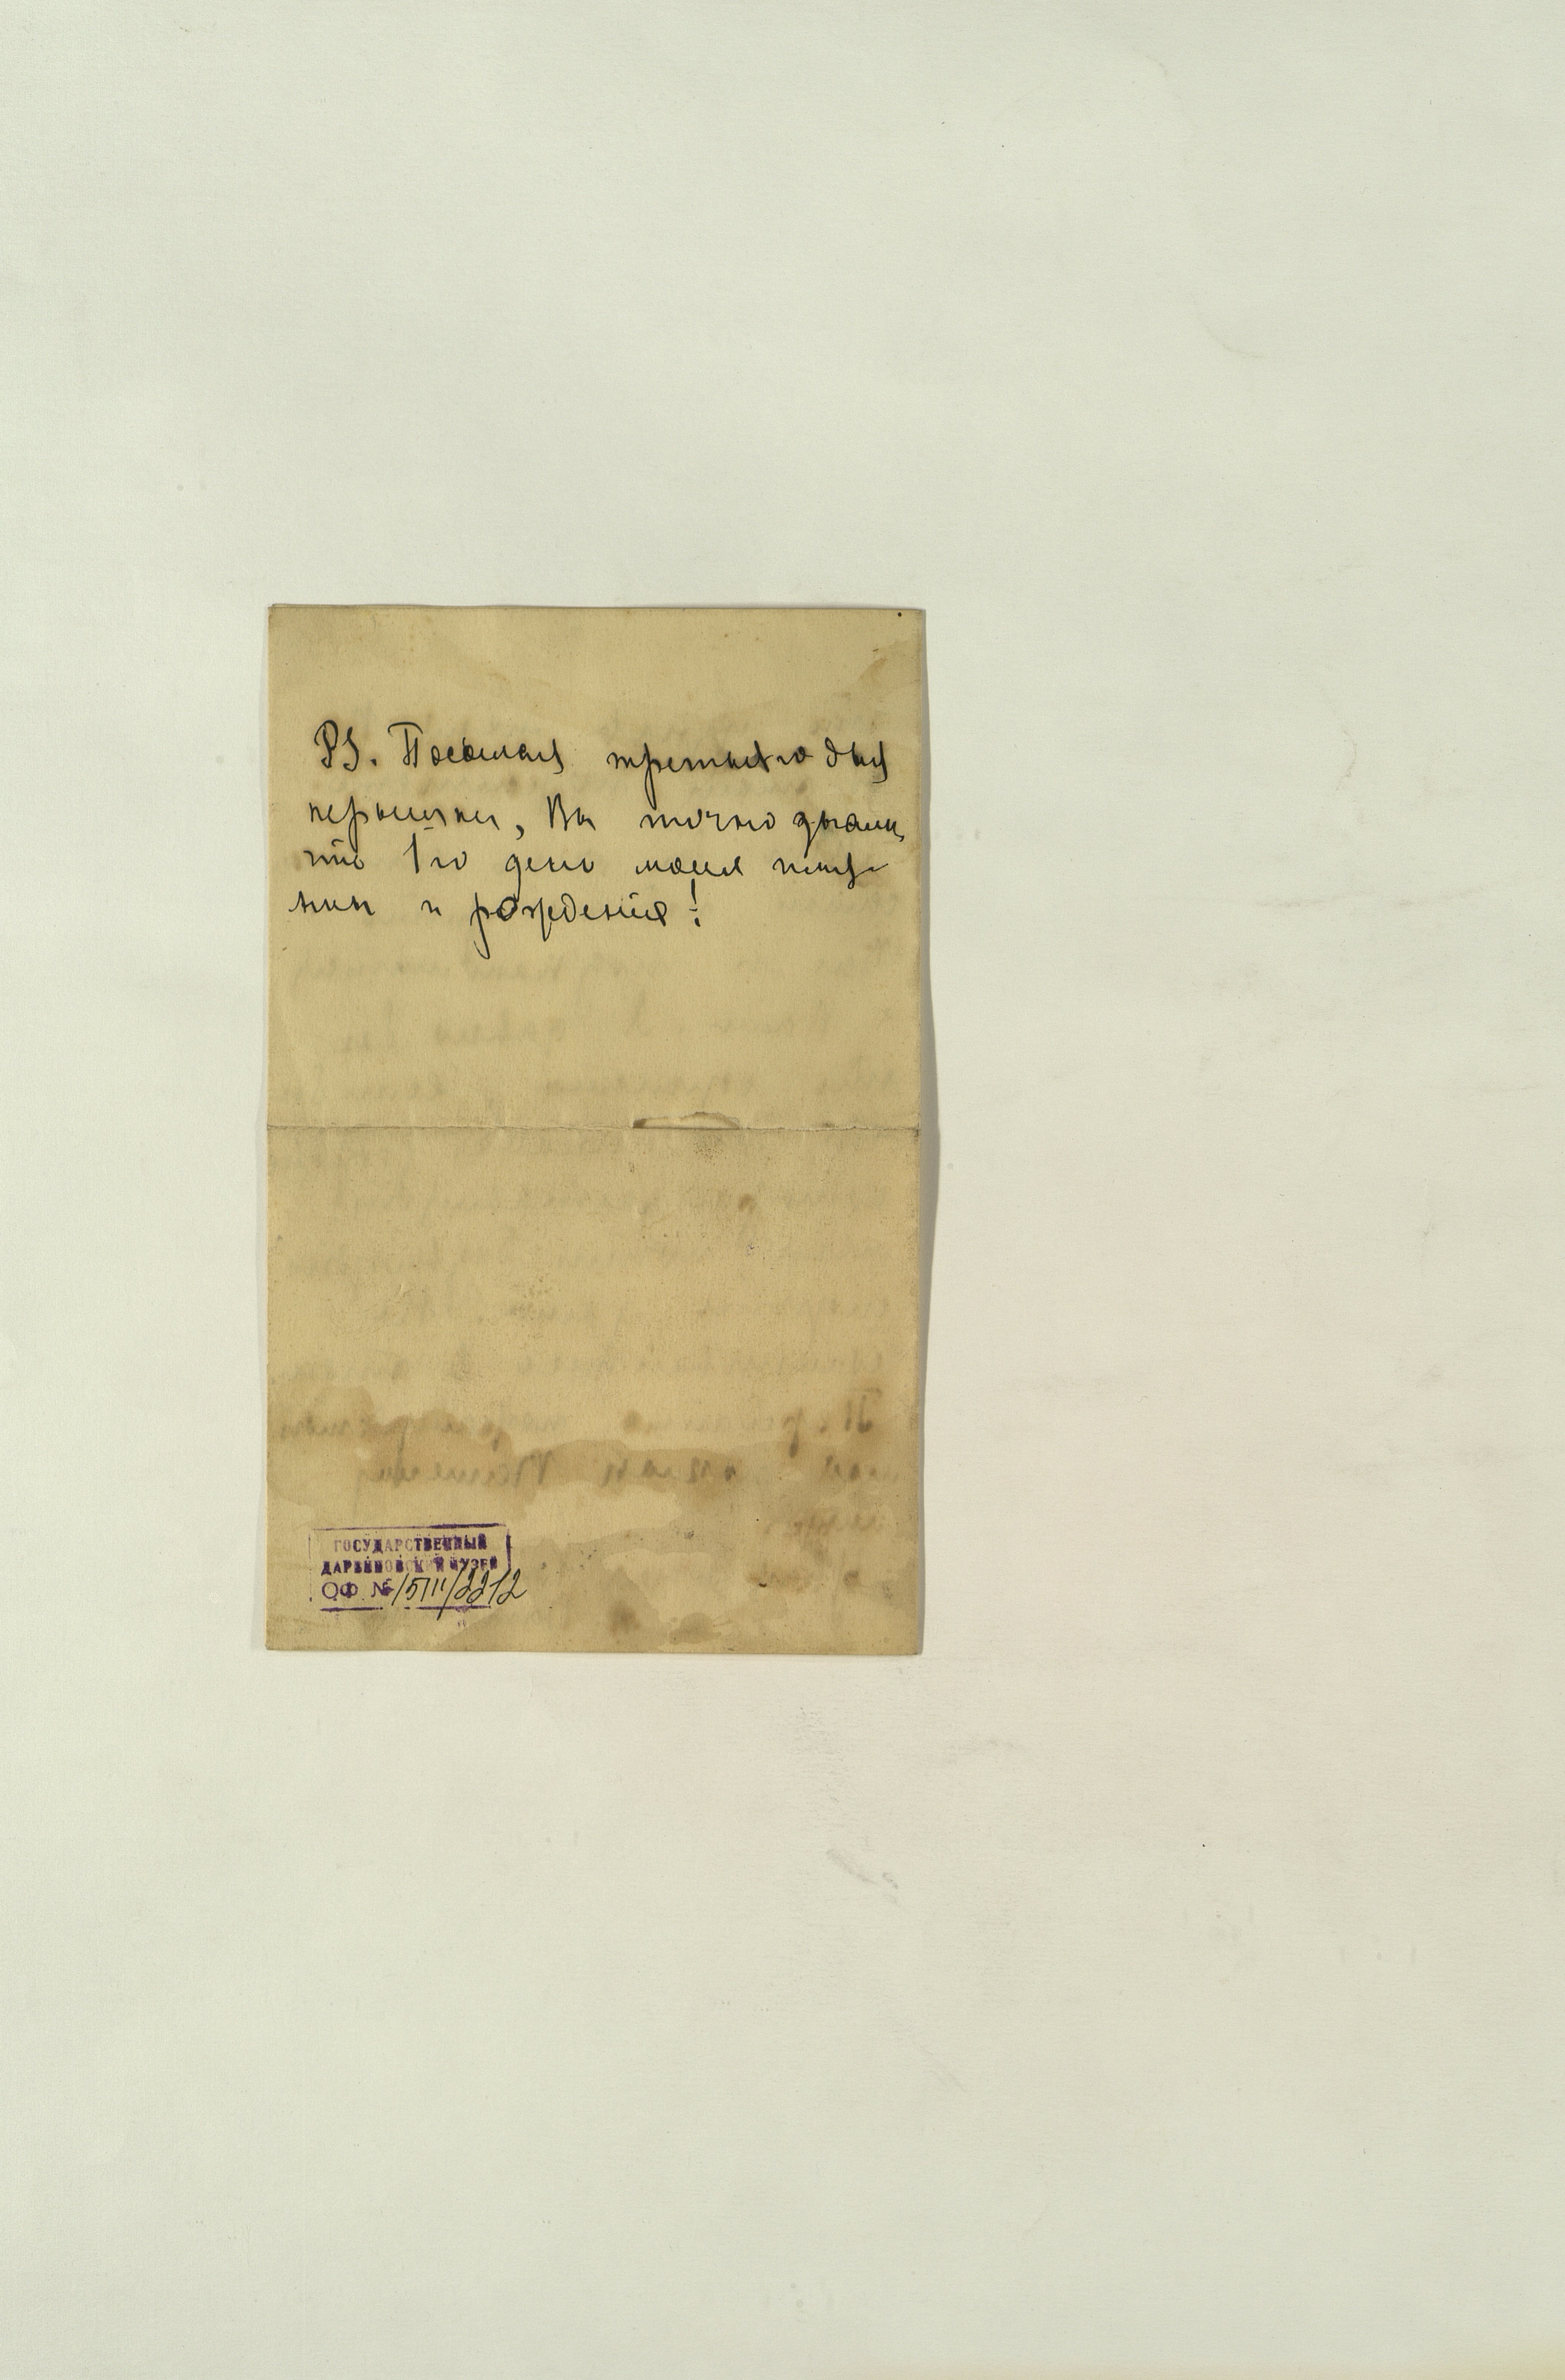 PS. Посылая третьяго дня
перышки, Вы точно знали,
что 1го день моих имя-
нин и рожденiя!
ГОСУДАРСТВЕННЫЙ
ДАРВИНОВСКИЙ МУЗЕЙ
ОФ №